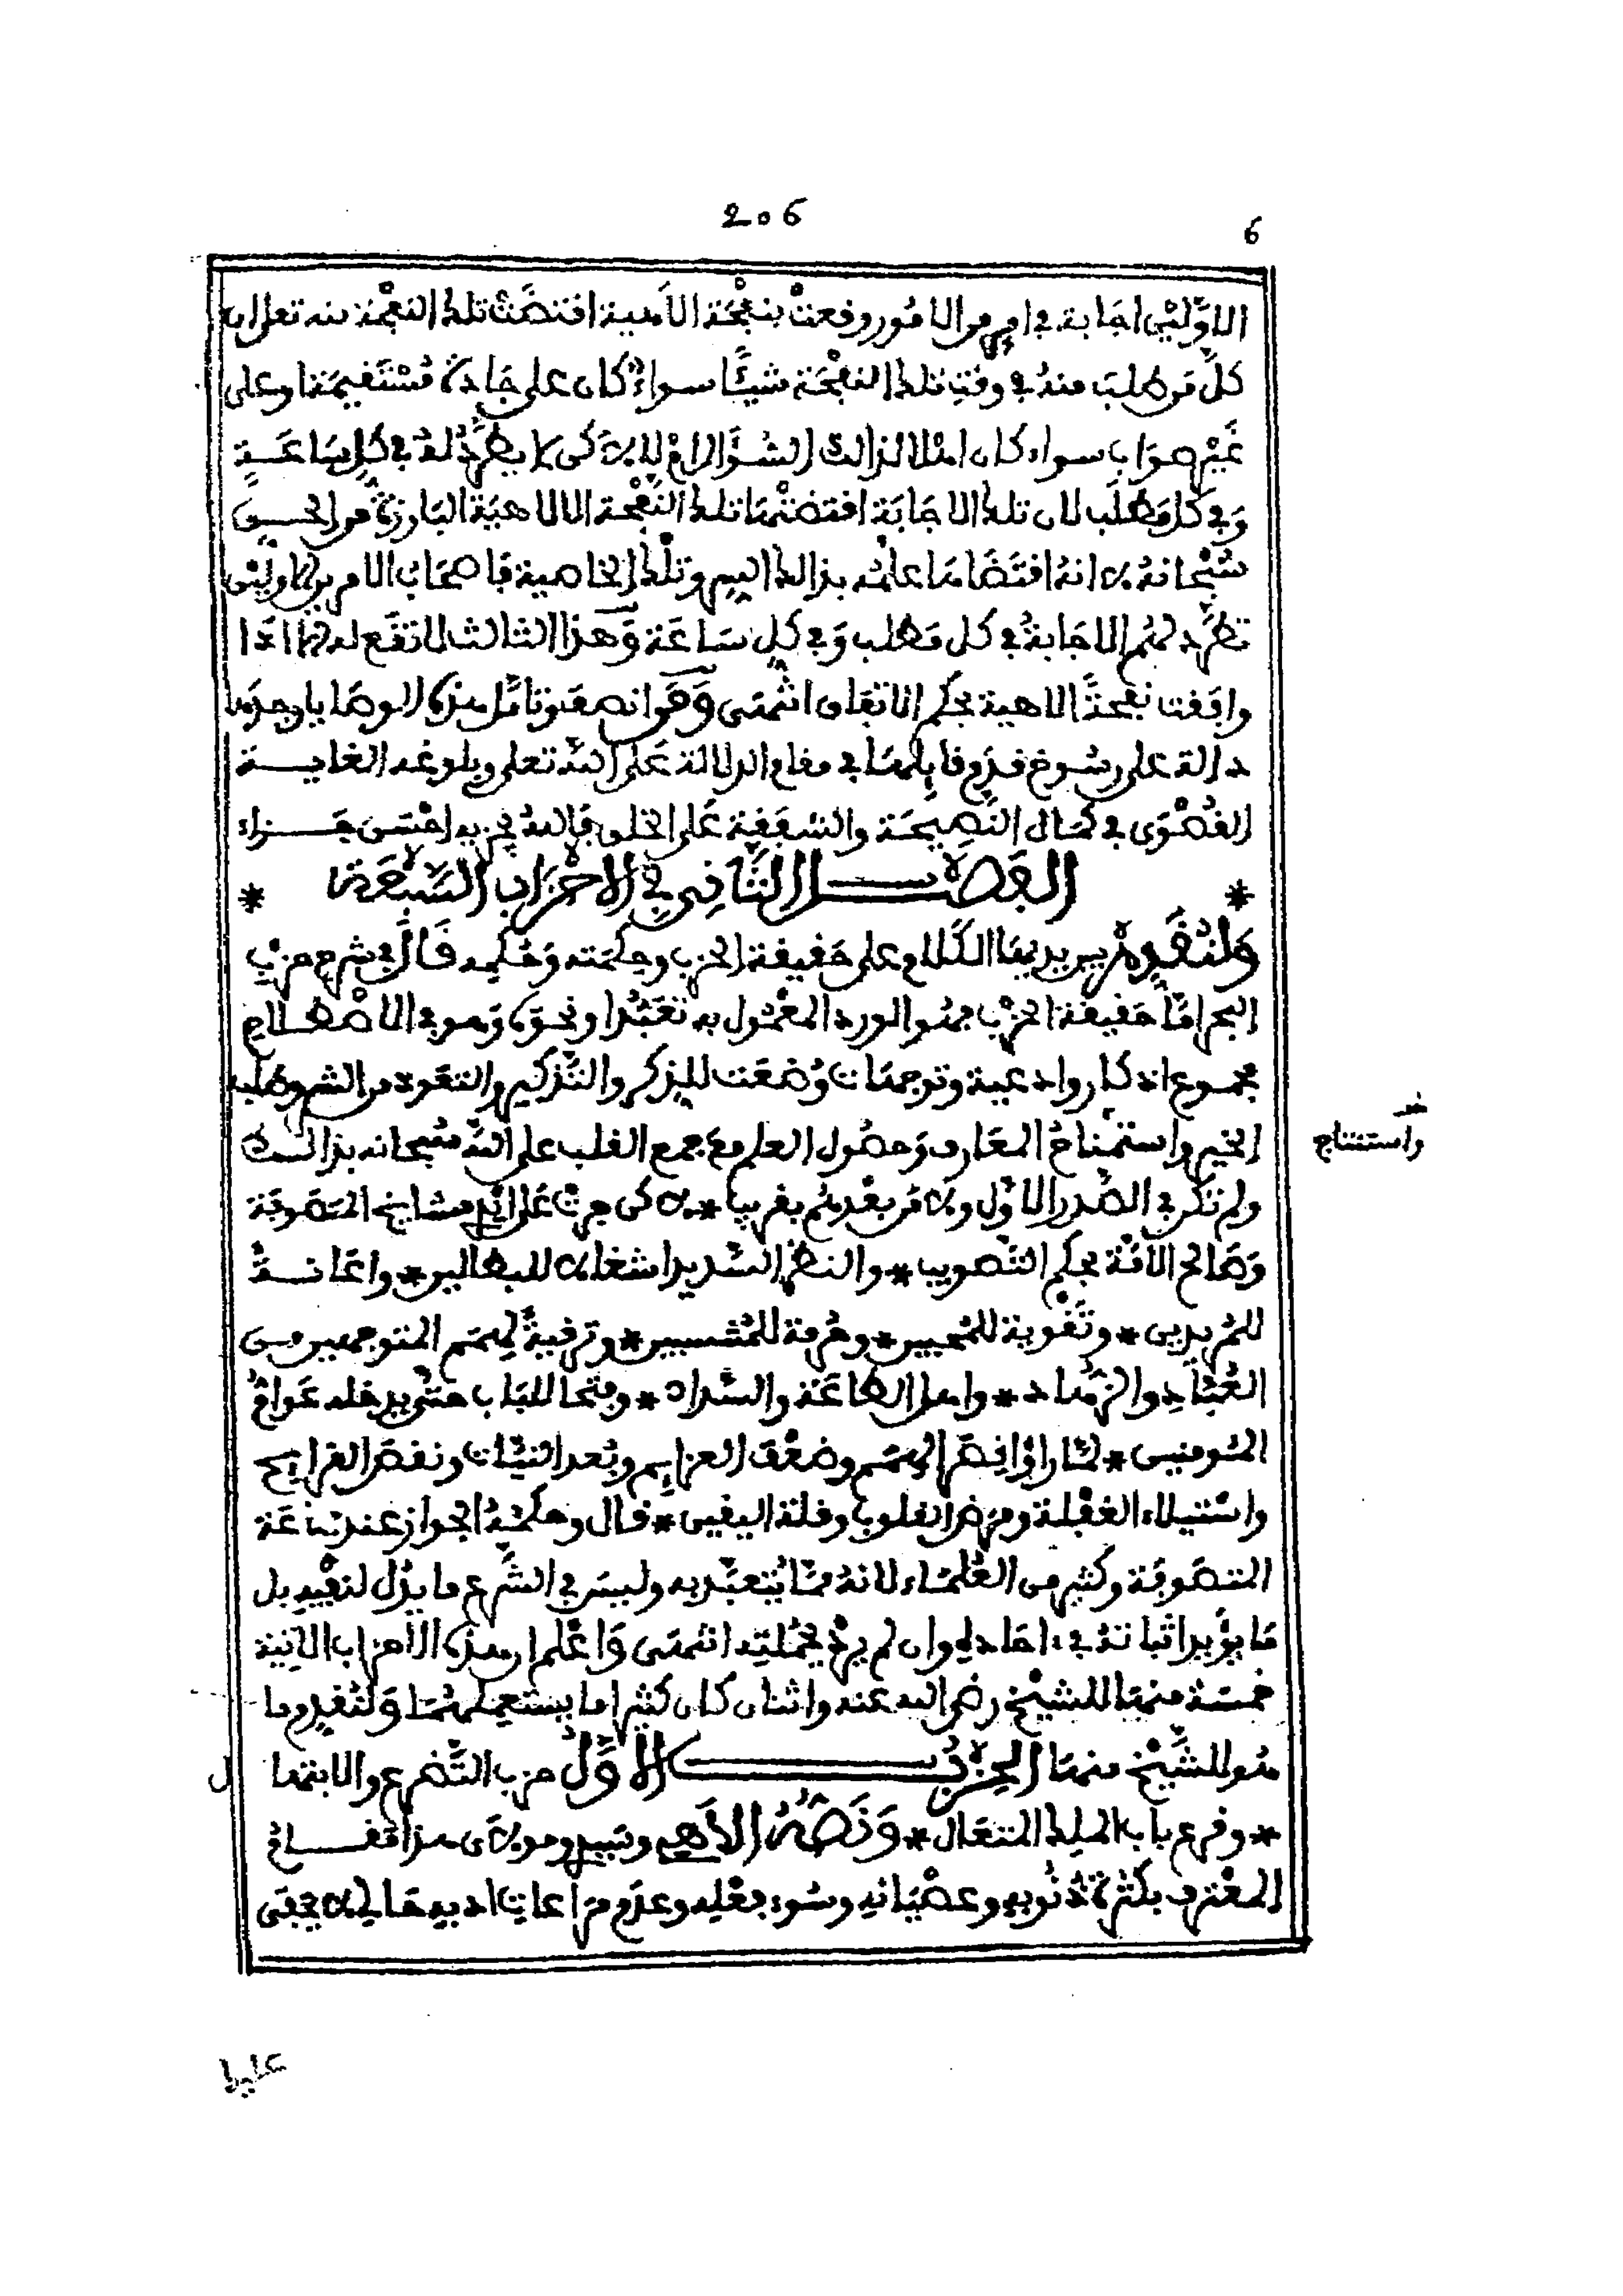 206
6
الاولين اجابة في امر من الامور وقعت بنفحة الاهية اقتضت تلك النفحة منه تعلى ان
كل من طلب منه في وقت تلك النفحة شيئا سواء كان على جادة مستقيمة او على
غير صواب سواء كان اهلا لذالك السؤال ام لا لاكن لا يطرد له في كل ساعة
وفي كل مطلب لان تلك الاجابة اقتضتها تلك النفحة الالاهية البارزة من الحق
سبحانه لا انه اقتضاها علمه بذالك السر وتلك الخاصية فاصحاب الامرين الاولين
تطرد لهم الاجابة في كل مطلب وفي كل ساعة وهذا الثالث لا تقع له الا اذا
وافقت نفحة الاهية بحكم الاتفاق انتهى وتامل هذه الوصايا وجدها
دالة على رسوخ قدم قايلها في مقام الدلالة على الله تعلى وبلوغه الغاية
القصوى في كمال النصيحة والشفقة على الخلق فالله يجزيه احسن جزاء
* الفصل الثاني في الاحزاب السبعة *
ولنقدم بين يديها الكلام على حقيقة الحزب وحكمته وحكمه قال في شرح حزب
البحر اما حقيقة الحزب فهو الورد المعمول به تعبدا ونحوه وهو في الاصطلاح
مجموع اذكار وادعية وتوجهات وضعت للذكر والتذكير والتعوذ من الشر وطلب
الخير واستمناح المعارف وحصول العلم مع جمع القلب على الله سبحانه بذالك
واستنتاج
ولم تكن في الصدر الاول ولا من بعدهم بقريب * لاكن جرت على ايدي مشايخ المتصوفة
وصالح الامة بحكم التصويب * والنظر السديد اشغالا للبطالين * واعانة
للمريدين * وتقوية للمحبين * وحرمة للمنتسبين * وترقية لهمم المتوجهين من
العباد والزهاد * واهل الطاعة والسداد * وفتحا للباب حتى يدخله عوام
المومنين * لما راوا قصر الهمم وضعف العزايم وبعد النيات ونقص القرايح
واستيلاء الغفلة ومرض القلوب وقلة اليقين * قال وحكمه الجواز عند جماعة
المتصوفة وكثير من العلماء لانه مما يتعبد به وليس في الشرع ما يدل لنفيه بل
ما يؤيد اثباته في احاده وان لم يرد بجملته انتهى واعلم ان هذه الاحزاب الاتية
خمسة منها للشيخ رضي الله عنه واثنان كان كثيرا ما يستعملهما ولنقدم ما
هو للشيخ منها الحزب الاول حزب التضرع والابتها
ل
* وقرع باب الملك المتعال * ونصه الاهي وسيدي ومولاي هذا مقام
المعترف بكثرة ذنوبه وعصيانه وسوء فعله وعدم مراعات ادبه حالي لا يخفى
عليك